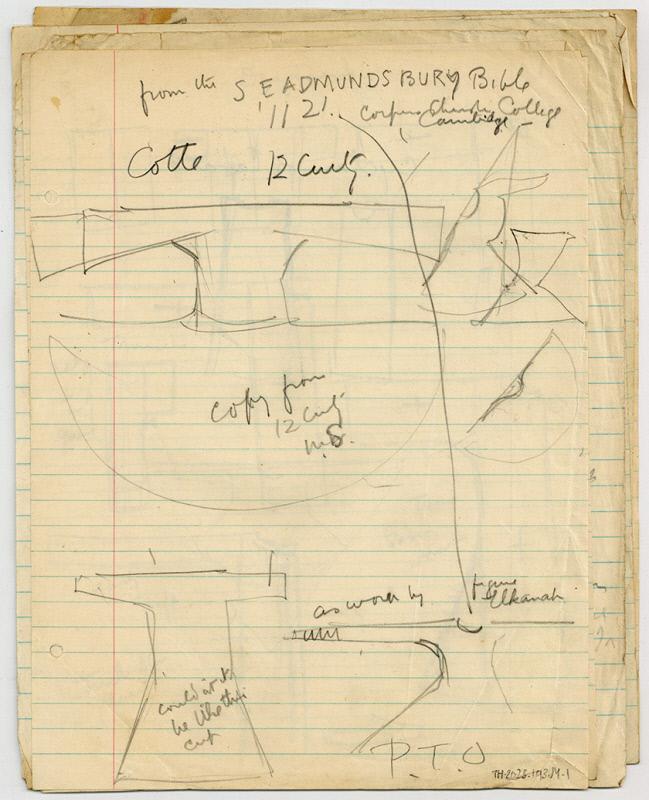 from the S EADMUNDSBURY Bible
1121.
Corpus Christi College
Cambridge
Cotte 12 Centy.
copy from
12 Centy
MS.
as worn by figure
Elkanah
couldn't it
be like this
cut
P.T.O